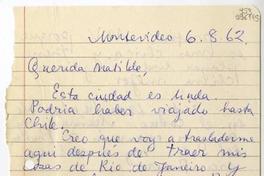 Montevideo 6.8.62
Querida Matilde,
Esta ciudad es linda.
Podría haber viajado hasta
Chile.
Creo que voy a trasladarme
aquí después de traer mis
cosas de Rio de Janeiro. Y